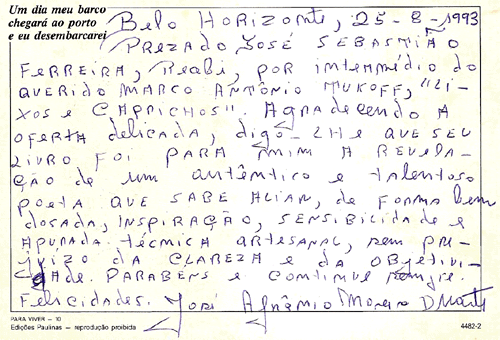 Um dia meu barco
chegará ao porto
e eu desembarcarei
Belo HORIZONTE, 25-8-1993
PREZADO JOSÉ SEBASTIÃO
FERREIRA, Recebi, POR intermédio do
QUERIDO MARCO ANTÔNIO MUKOFF, "LI-
XOS E CAPRICHOS". AGRADECENDO A
OFERTA delicada, digo-LHE QUE SEU
LIVRO FOI PARA mim A REVELA-
ÇÃO de um autêntico e talentoso
POETA QUE SABE ALIAR, de FORMA bem
dosada, INSPIRAÇÃO, SENSIBILIDADE e
APURADA TÉCNICA ARTESANAL, sem PRE-
JUÍZO da CLAREZA e da OBJETIVI-
DADE. PARABÉNS e CONTINUE sempre.
Felicidades. José Afrânio Moreira Duarte
PARA VIVER — 10
Edições Paulinas — reprodução proibida
4482-2